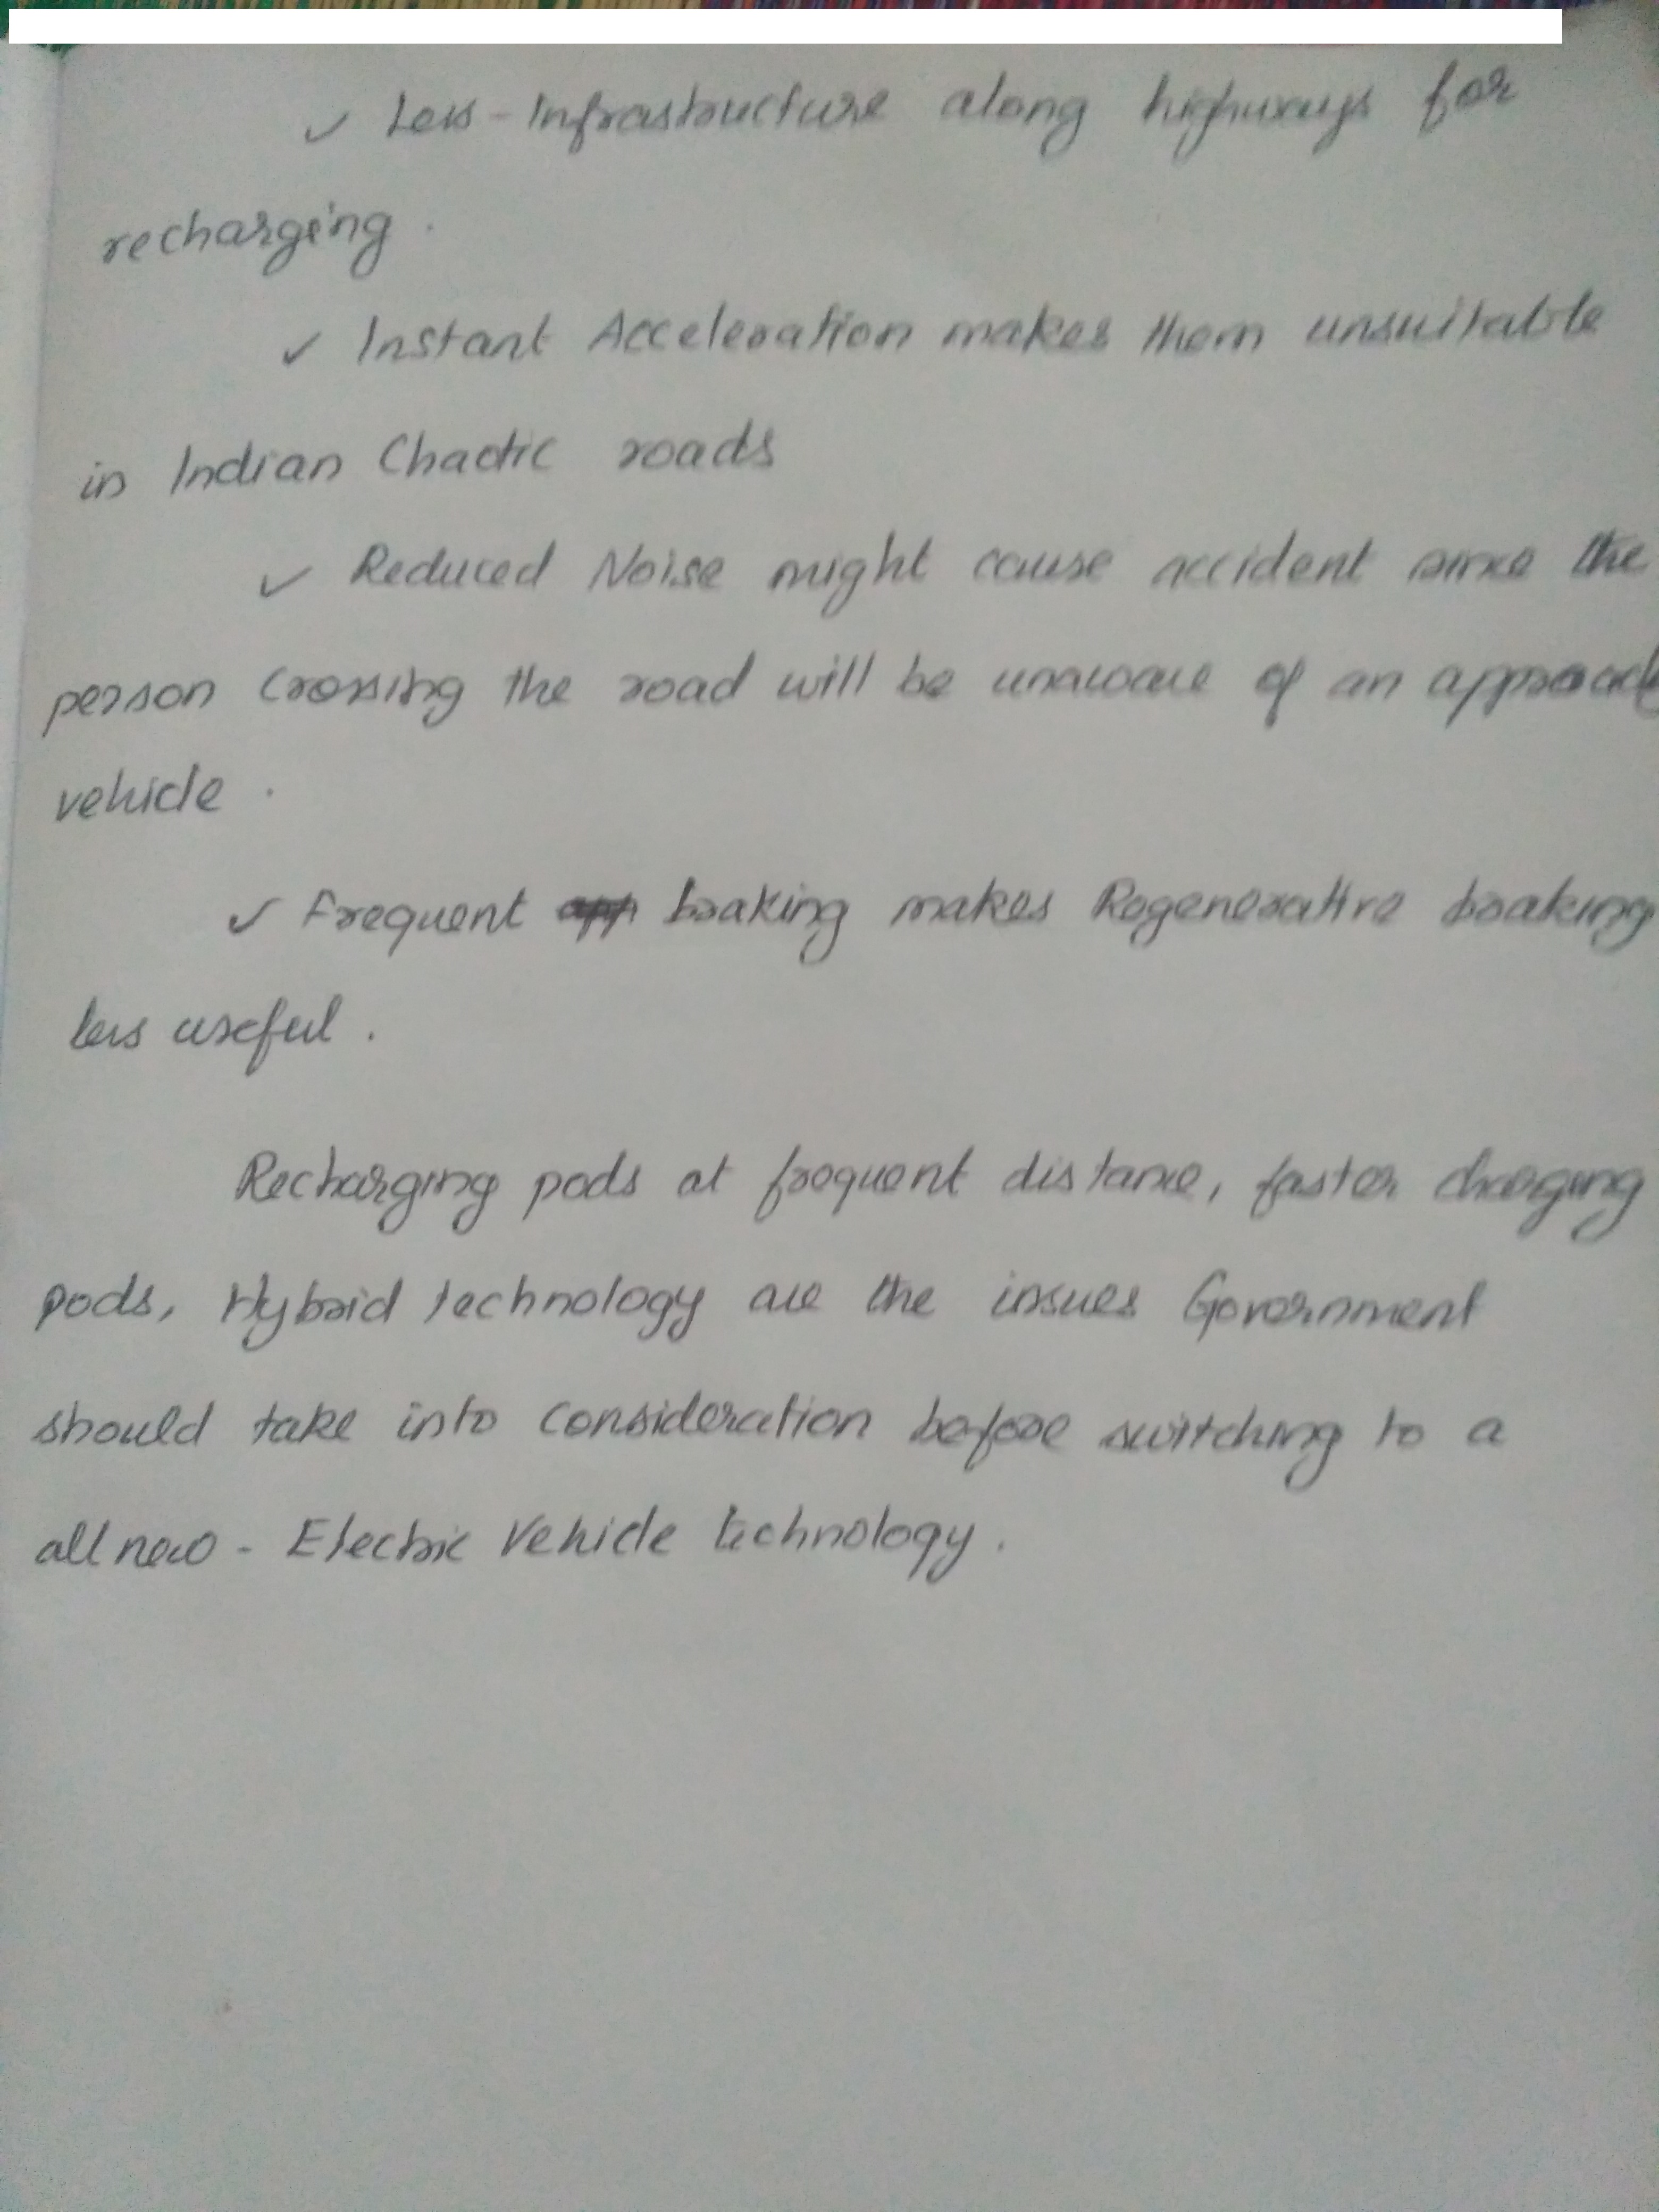 ✓ Less - Infrastructure along highways for
recharging.
✓ Instant Acceleration makes them unsuitable
in Indian Chaotic roads
✓ Reduced Noise might cause accident since the
person crossing the road will be unaware of an approach
vehicle.
✓ Frequent braking makes Regenerative braking
less useful.
Recharging pods at frequent distance, faster charging
pods, Hybrid technology are the issues Government
should take into consideration before switching to a
all new - Electric Vehicle technology.